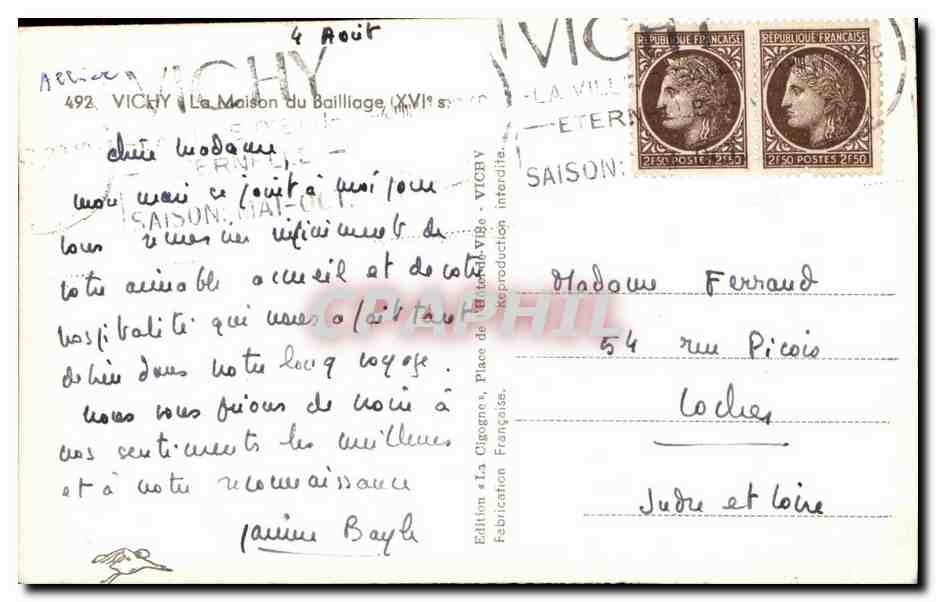 4 Août
Allier
492. VICHY - La Maison du Bailliage (XVIe s.)
VICHY
ERNELLE
SAISON: MAI-OCT.
chère Madame,
mon mari se joint à moi pour
vous remercier infiniment de
votre aimable accueil et de votre
hospitalité qui nous a fait tant
de bien dans notre long voyage.
Nous vous prions de croire à
nos sentiments les meilleurs
et à notre reconnaissance
Janine Bayle
Edition « La Cigogne », Place de l'Hôtel-de-Ville - VICHY
Fabrication Française. Reproduction interdite.
VICHY
LA VILLE
ETERN
SAISON:
REPUBLIQUE FRANÇAISE
2F50 POSTES 2F50
REPUBLIQUE FRANÇAISE
2F50 POSTES 2F50
Madame Ferrand
54 rue Picois
Loches
Indre et Loire
CPAPHIL